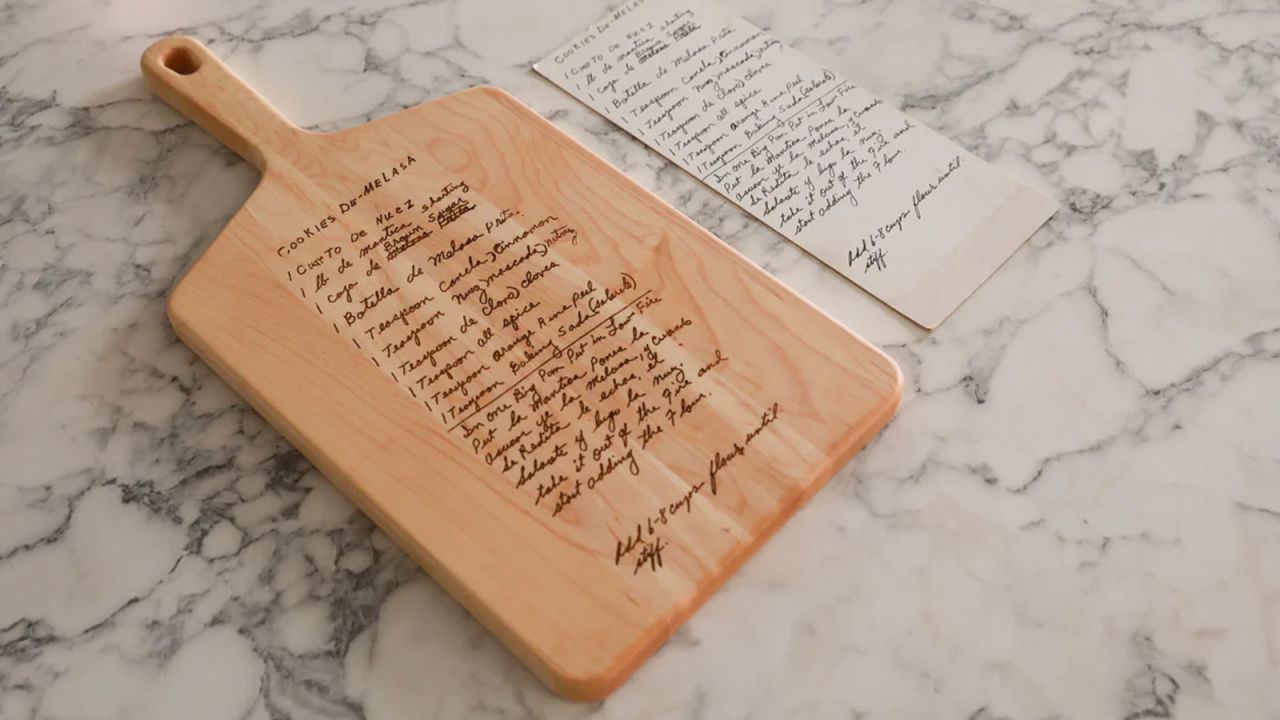 COOKIES DE-MELASA
1 CUARTO DE NUEZ
1 lb de mantica shorting
1 caja de Brown Sugar
1 Botella de Melasa Prta.
1 Teaspoon Canela) Cinnamon
1 Teaspoon Nuez) moscada) nutmg
1 Teaspoon de Clovo) cloves
1 Teaspoon all spice
1 Teaspoon orange Rine Peel
1 Teaspoon Baking Soda (salarets)
In one Big Pan Put in Low Fire
Put la Mantica Ponen la
asucar yt la melasa, y cuando
se Redite le echas, el
Salarate y luego la nuez
take it out of the Fire and
start adding the Flour.
Add 6-8 cups flour until
stiff.
COOKIES DE-MELAS
1 CUARTO DE NUEZ
1 lb de mantica shorting
1 caja de Brown Sugar
1 Botella de Melasa Prta
1 Teaspoon Canela) Cinnamon
1 Teaspoon Nuez) moscada) nutmg
1 Teaspoon de Clovo) cloves
1 Teaspoon all spice
1 Teaspoon orange Rine Peel
1 Teaspoon Baking Soda (salarets)
In one Big Pan Put in Low Fire
Put la Mantica Ponen la
asucar yt la melasa, y cuando
se Redite le echas, el
Salarate y luego la nuez
take it out of the Fire and
start adding the Flour.
Add 6-8 cups flour until
stiff.